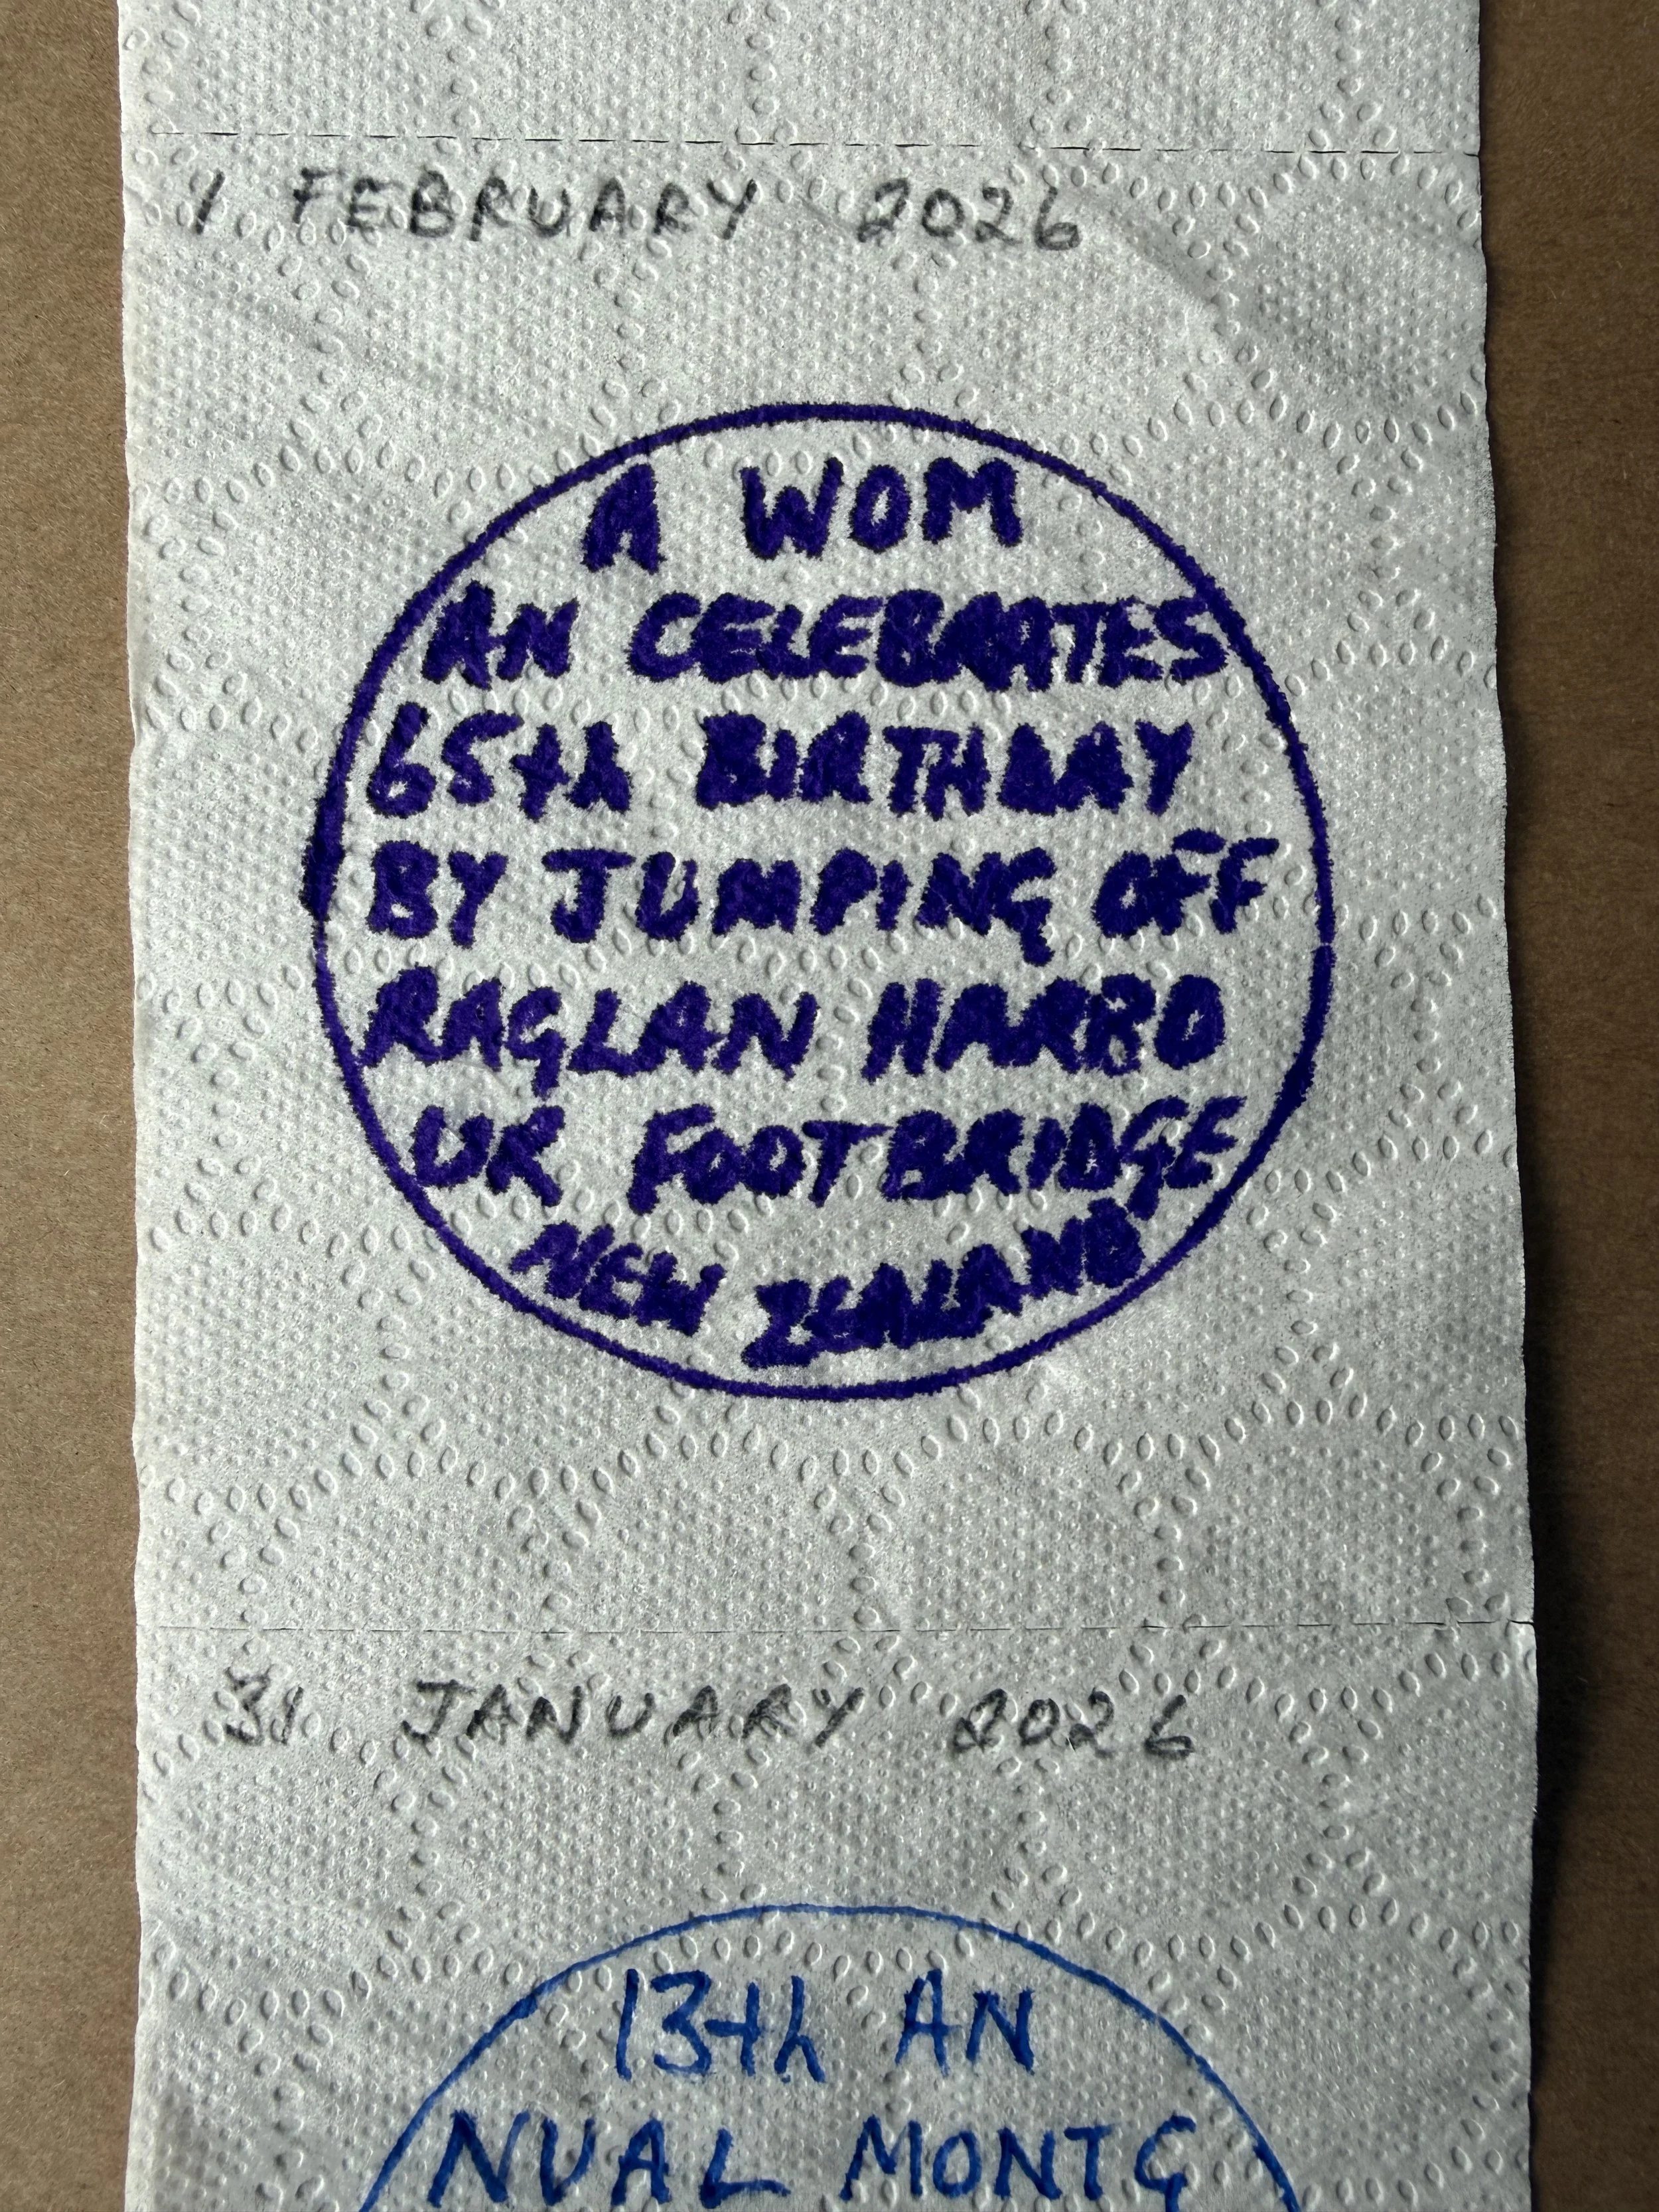 1 FEBRUARY 2026
A WOM
AN CELEBRATES
65th BIRTHDAY
BY JUMPING OFF
RAGLAN HARBO
UR FOOTBRIDGE
NEW ZEALAND
31 JANUARY 2026
13th AN
NUAL MONTG